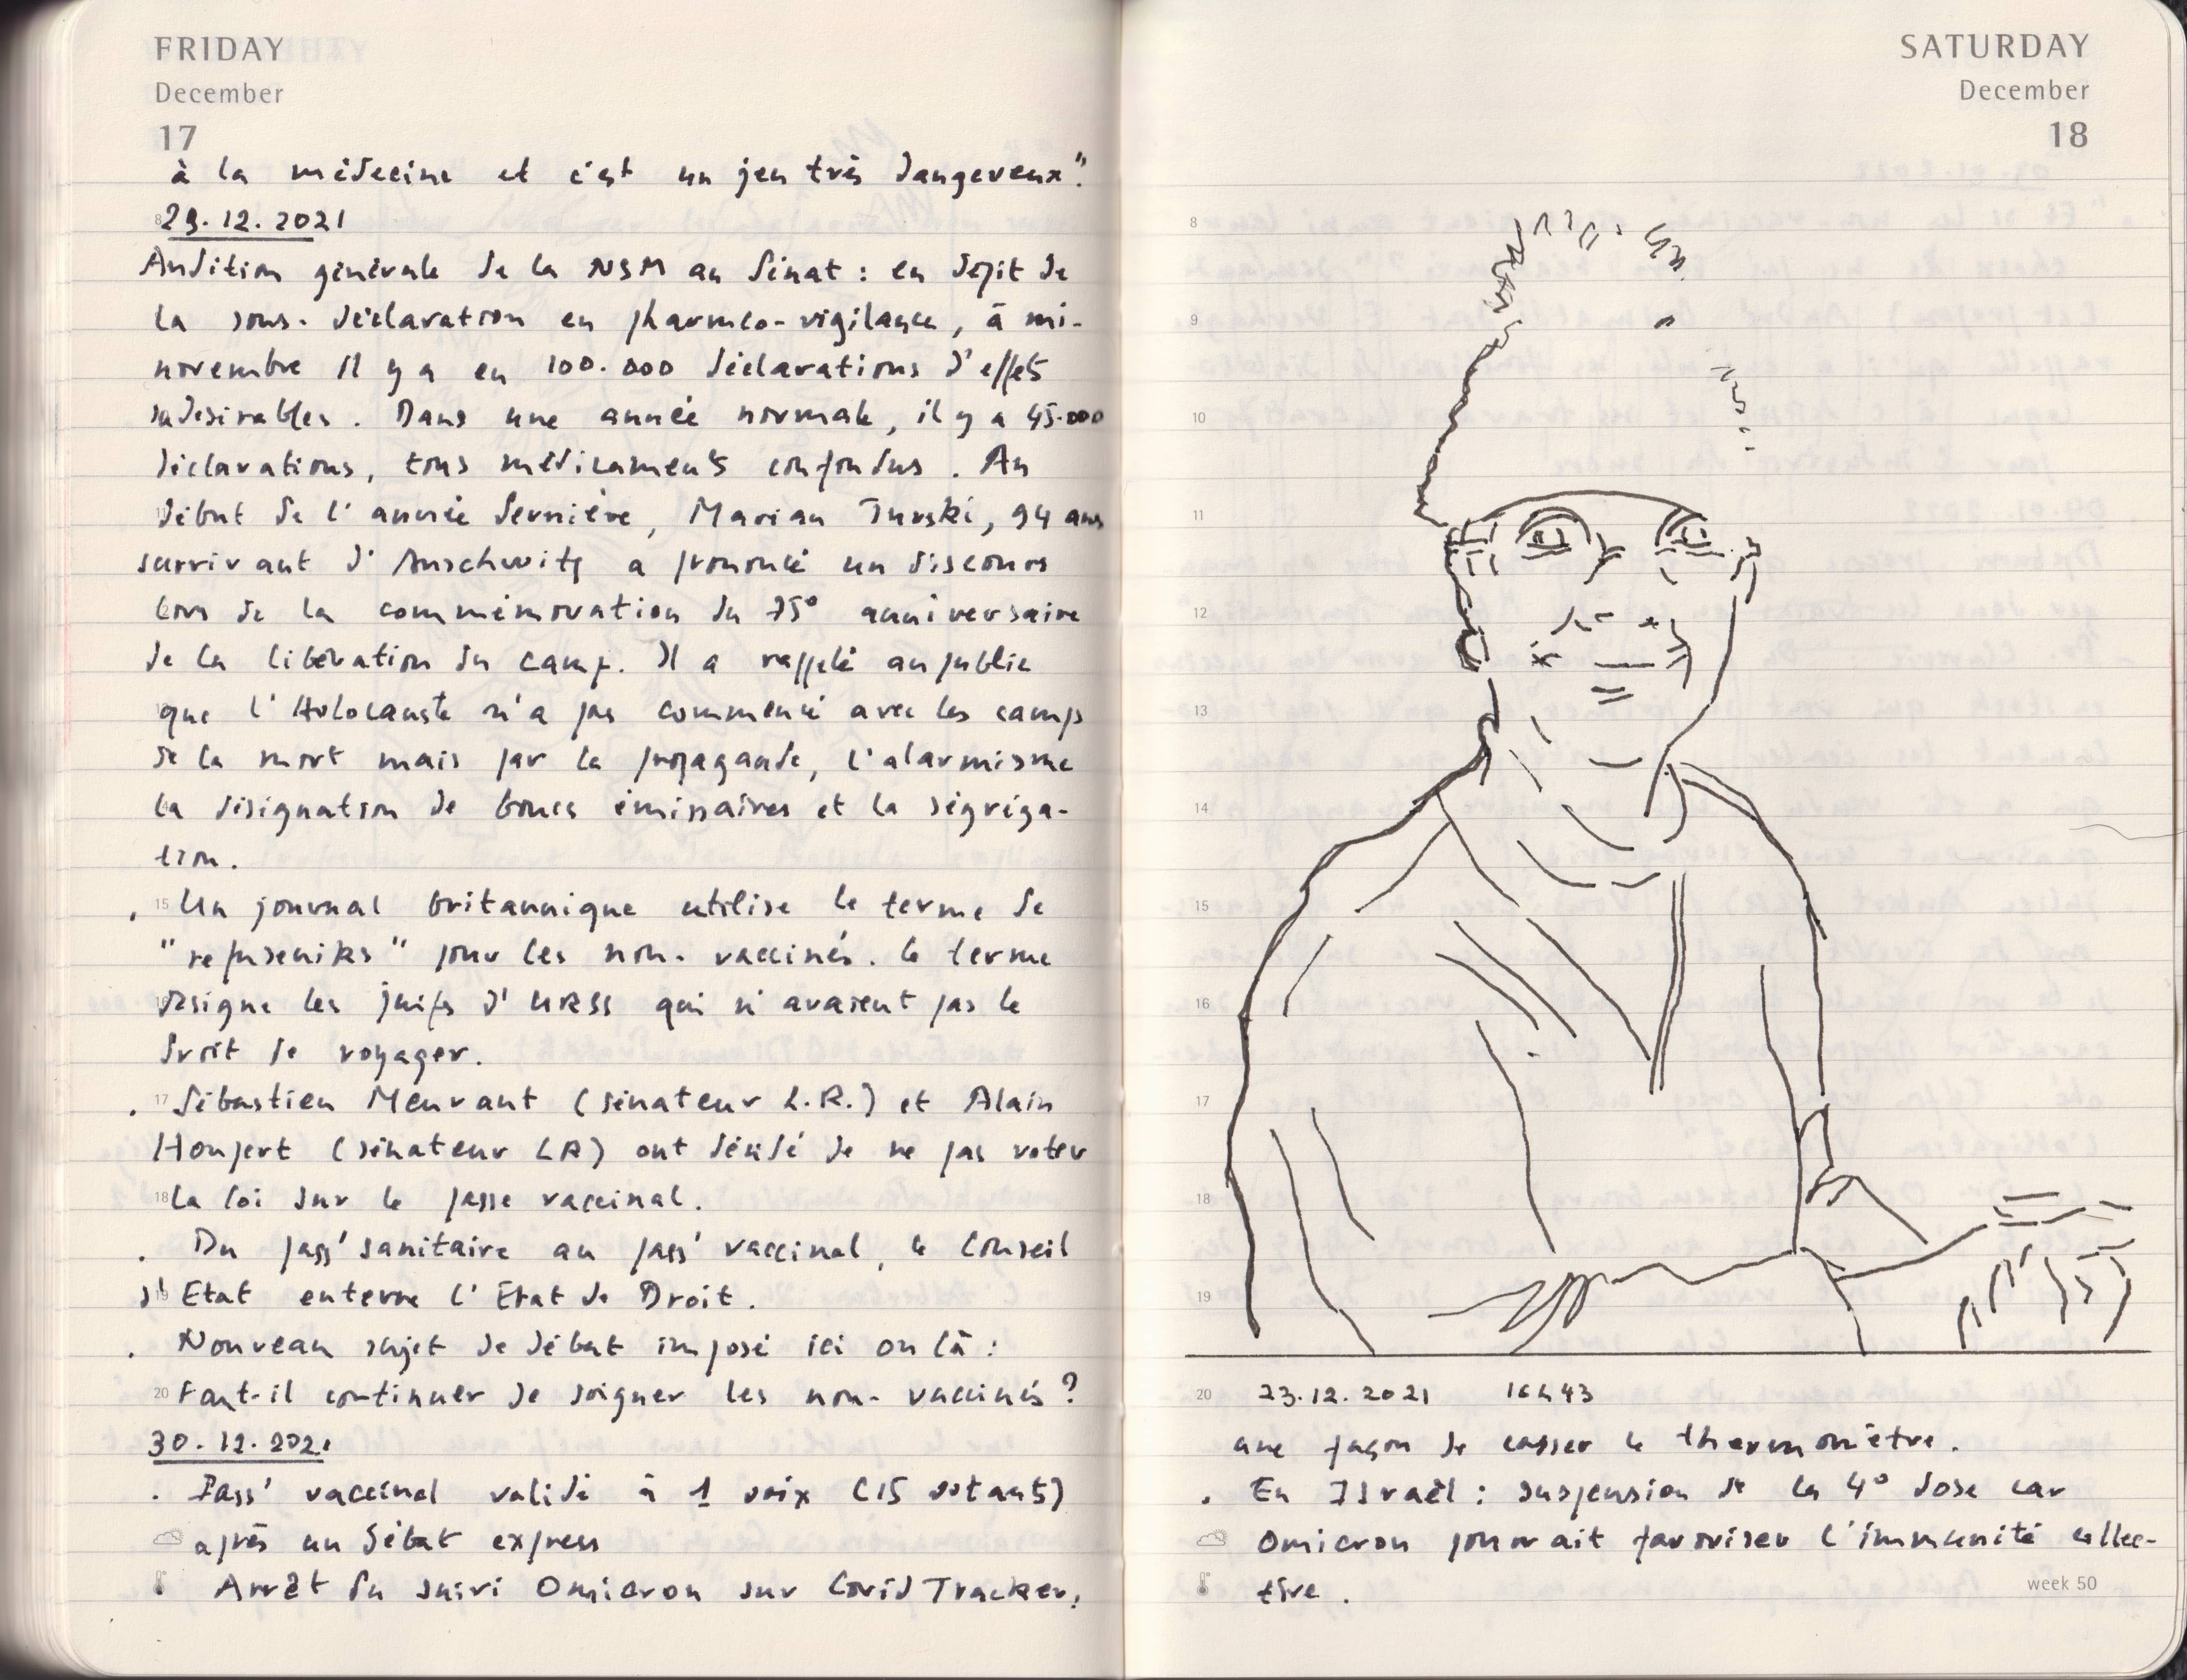 FRIDAY
December
17
à la médecine et c'est un jeu très dangereux".
29.12.2021
Audition générale de la NSM au Sénat : en dépit de
la sous-déclaration en pharmco-vigilance, à mi-
novembre il y a eu 100.000 déclarations d'effets
indésirables. Dans une année normale, il y a 45.000
déclarations, tous médicaments confondus. Au
début de l'année dernière, Marian Turski, 94 ans
survivant d'Auschwitz a prononcé un discours
lors de la commémoration du 75° anniversaire
de la libération du camp. Il a rappelé au public
que l'Holocauste n'a pas commencé avec les camps
de la mort mais par la propagande, l'alarmisme
la désignation de boucs émissaires et la ségréga-
tion.
. Un journal britannique utilise le terme de
"refuseniks" pour les non-vaccinés. Le terme
désigne les juifs d'URSS qui n'avaient pas le
droit de voyager.
. Sébastien Meurant (sénateur L.R.) et Alain
Houpert (sénateur LR) ont décidé de ne pas voter
la loi sur le passe vaccinal.
. Du pass' sanitaire au pass' vaccinal, le Conseil
d'Etat enterre l'Etat de Droit.
. Nouveau sujet de débat imposé ici ou là :
Faut-il continuer de soigner les non-vaccinés ?
30.12.2021
. Pass' vaccinal validé à 1 voix (15 votants)
après un débat express
Arrêt du suivi Omicron sur Covid Tracker,
SATURDAY
December
18
8
9
10
11
12
13
14
15
16
17
18
19
20 23.12.2021 16h43
une façon de casser le thermomètre.
. En Israël : suspension de la 4° dose car
Omicron pourrait favoriser l'immunité collec-
tive.
week 50